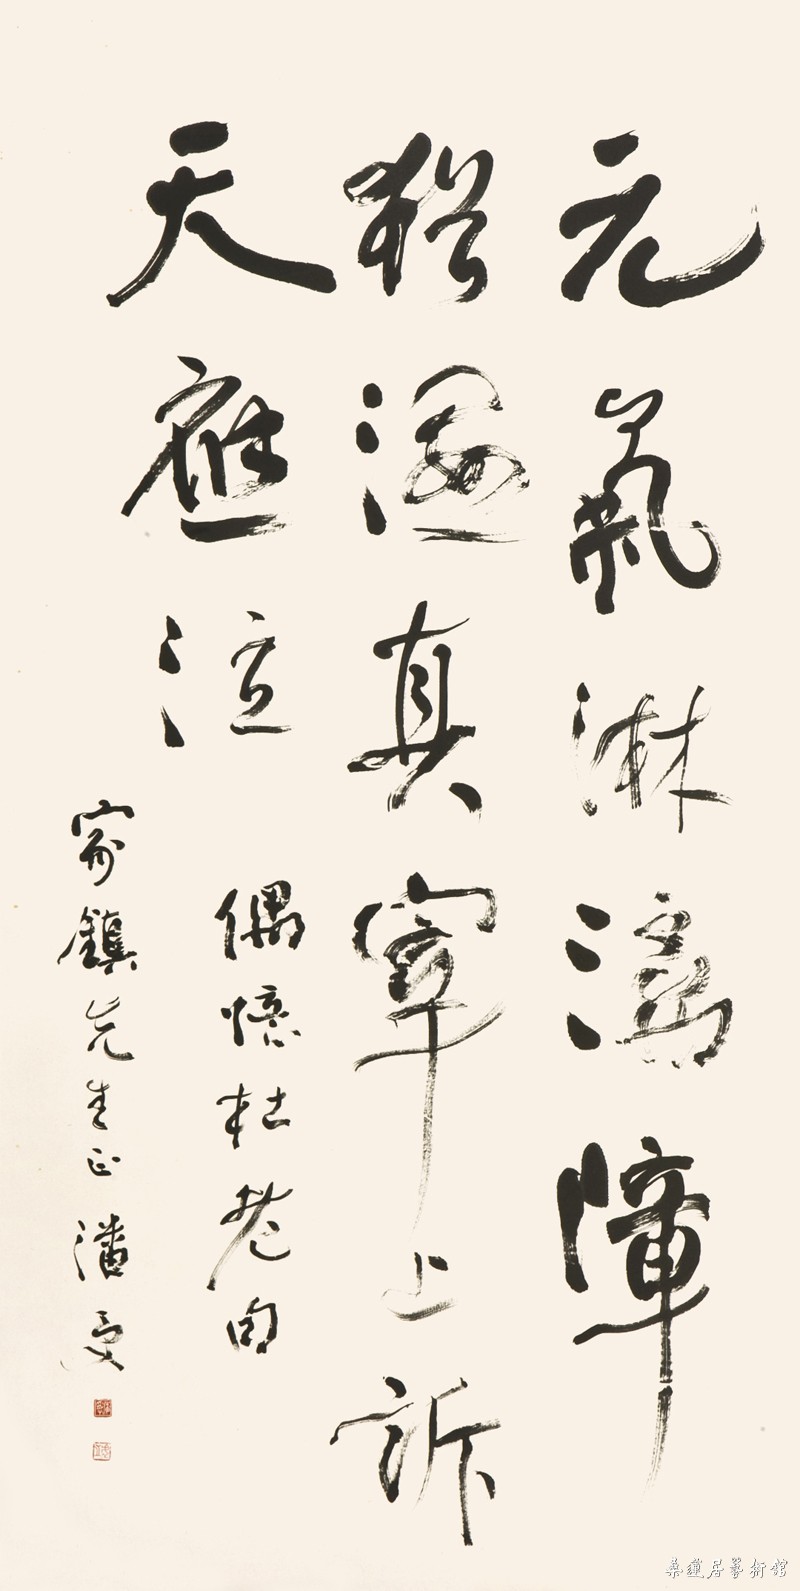 元氣淋漓障
猶濕真宰上訴
天應泣
偶憶杜老句
家鎮先生正 潘受
桑蓮居藝術館